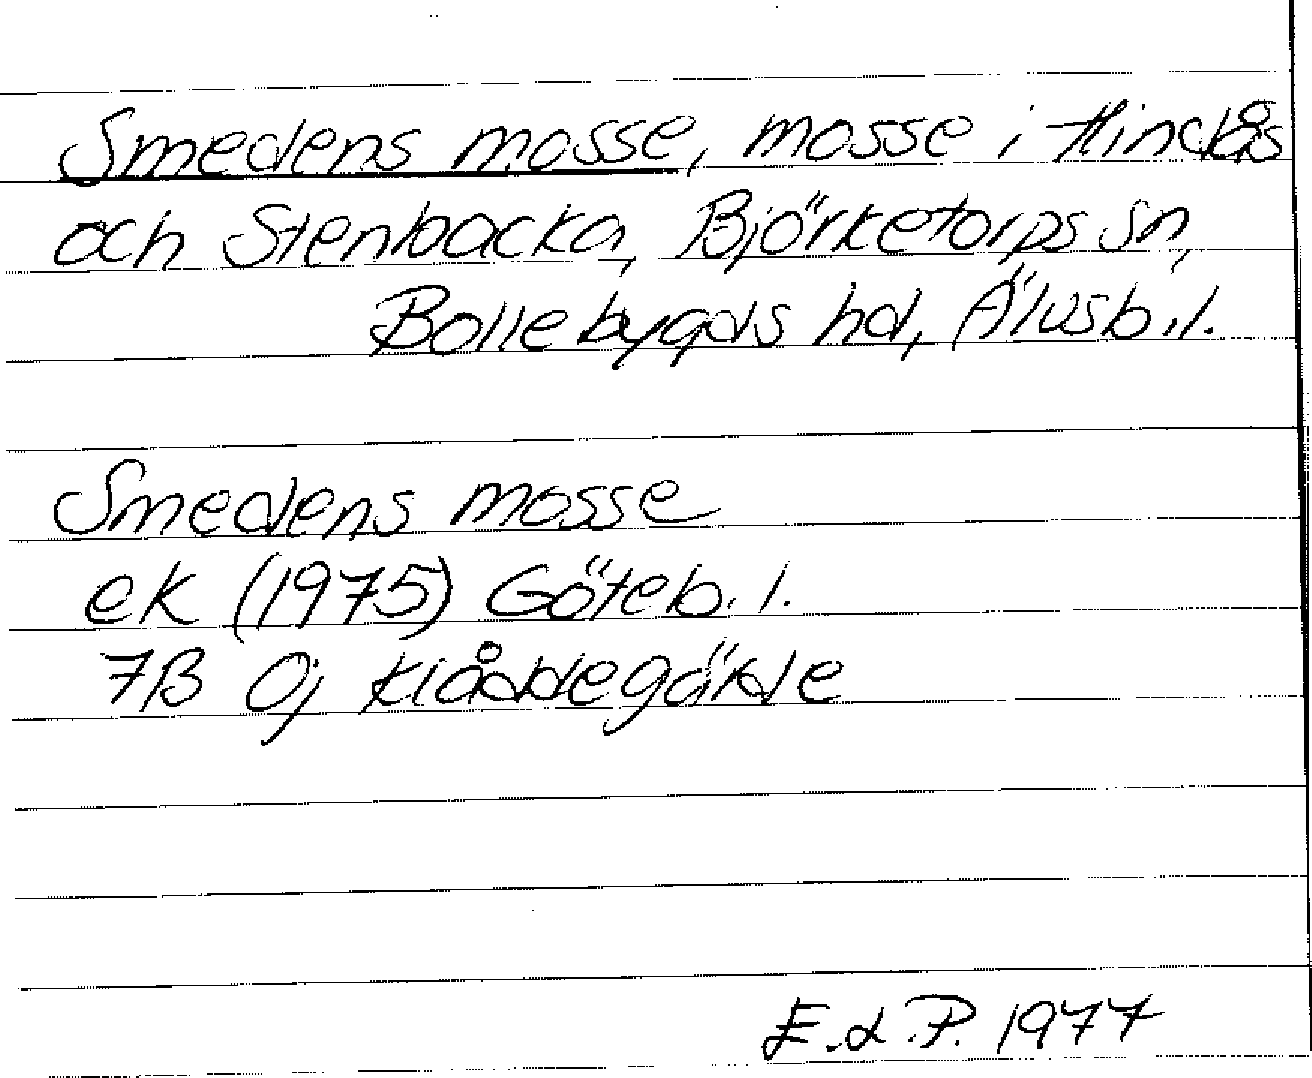 Smedens mosse, mosse i Hindås
och Stenbacka, Björketorps sn,
Bollebygds hd, Älvsb. l.
Smedens mosse
ek (1975) Göteb. l.
7B 0j Klåddegärde
E.d.P. 1977